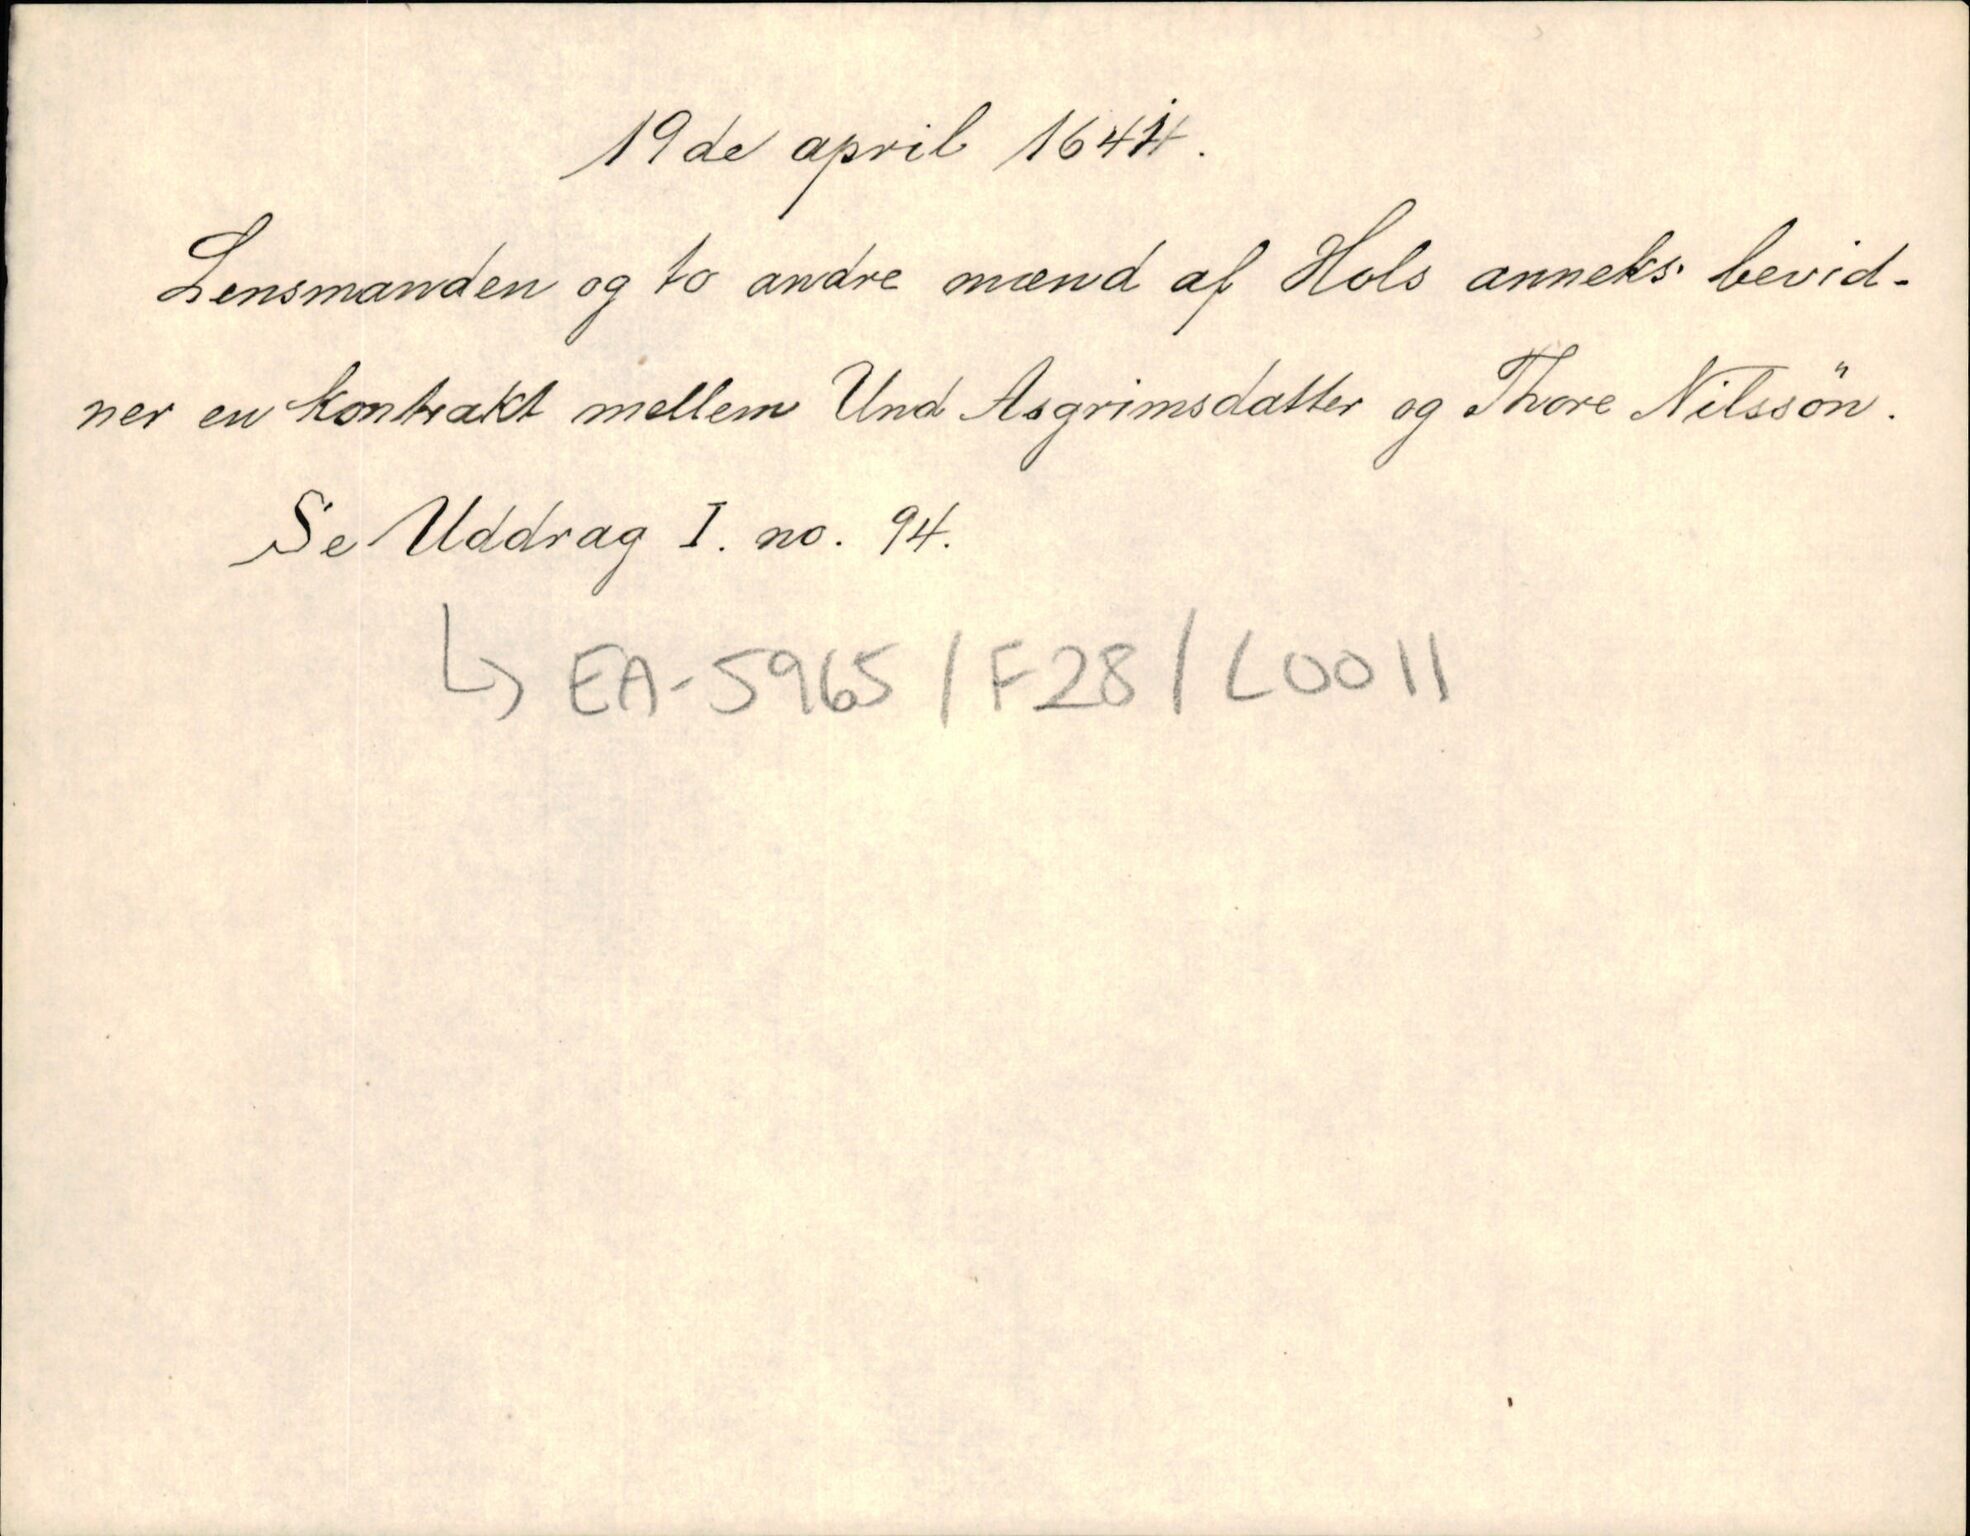 19de april 1644.
Lensmanden og to andre mænd af Hols anneks bevid-
ner en kontrakt mellem Und Asgrimsdatter og Thore Nilssön.
Se Uddrag I. no. 94.
↳ EA-5965/F28/L0011